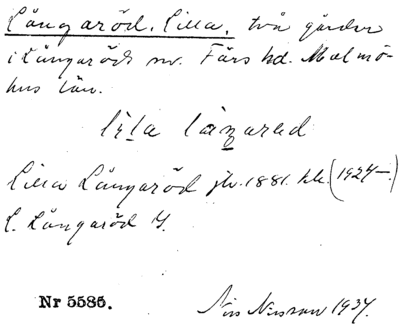 Långaröd, Lilla, två gårdar
i Långaröds sn. Färs hd. Malmö-
hus län.
lı̨la låŋarød
Lilla Långaröd jb. 1881. kk. (1927—)
L. Långaröd Y.
Nr 5585.
Nils Nilsson 1937.